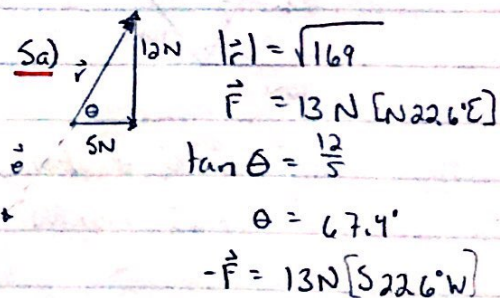 5a)
12N
r⃗
θ
5N
e⃗
|r⃗| = √169
F⃗ = 13 N [N22.6°E]
tan θ = 12/5
θ = 67.4°
-F⃗ = 13N [S22.6°W]